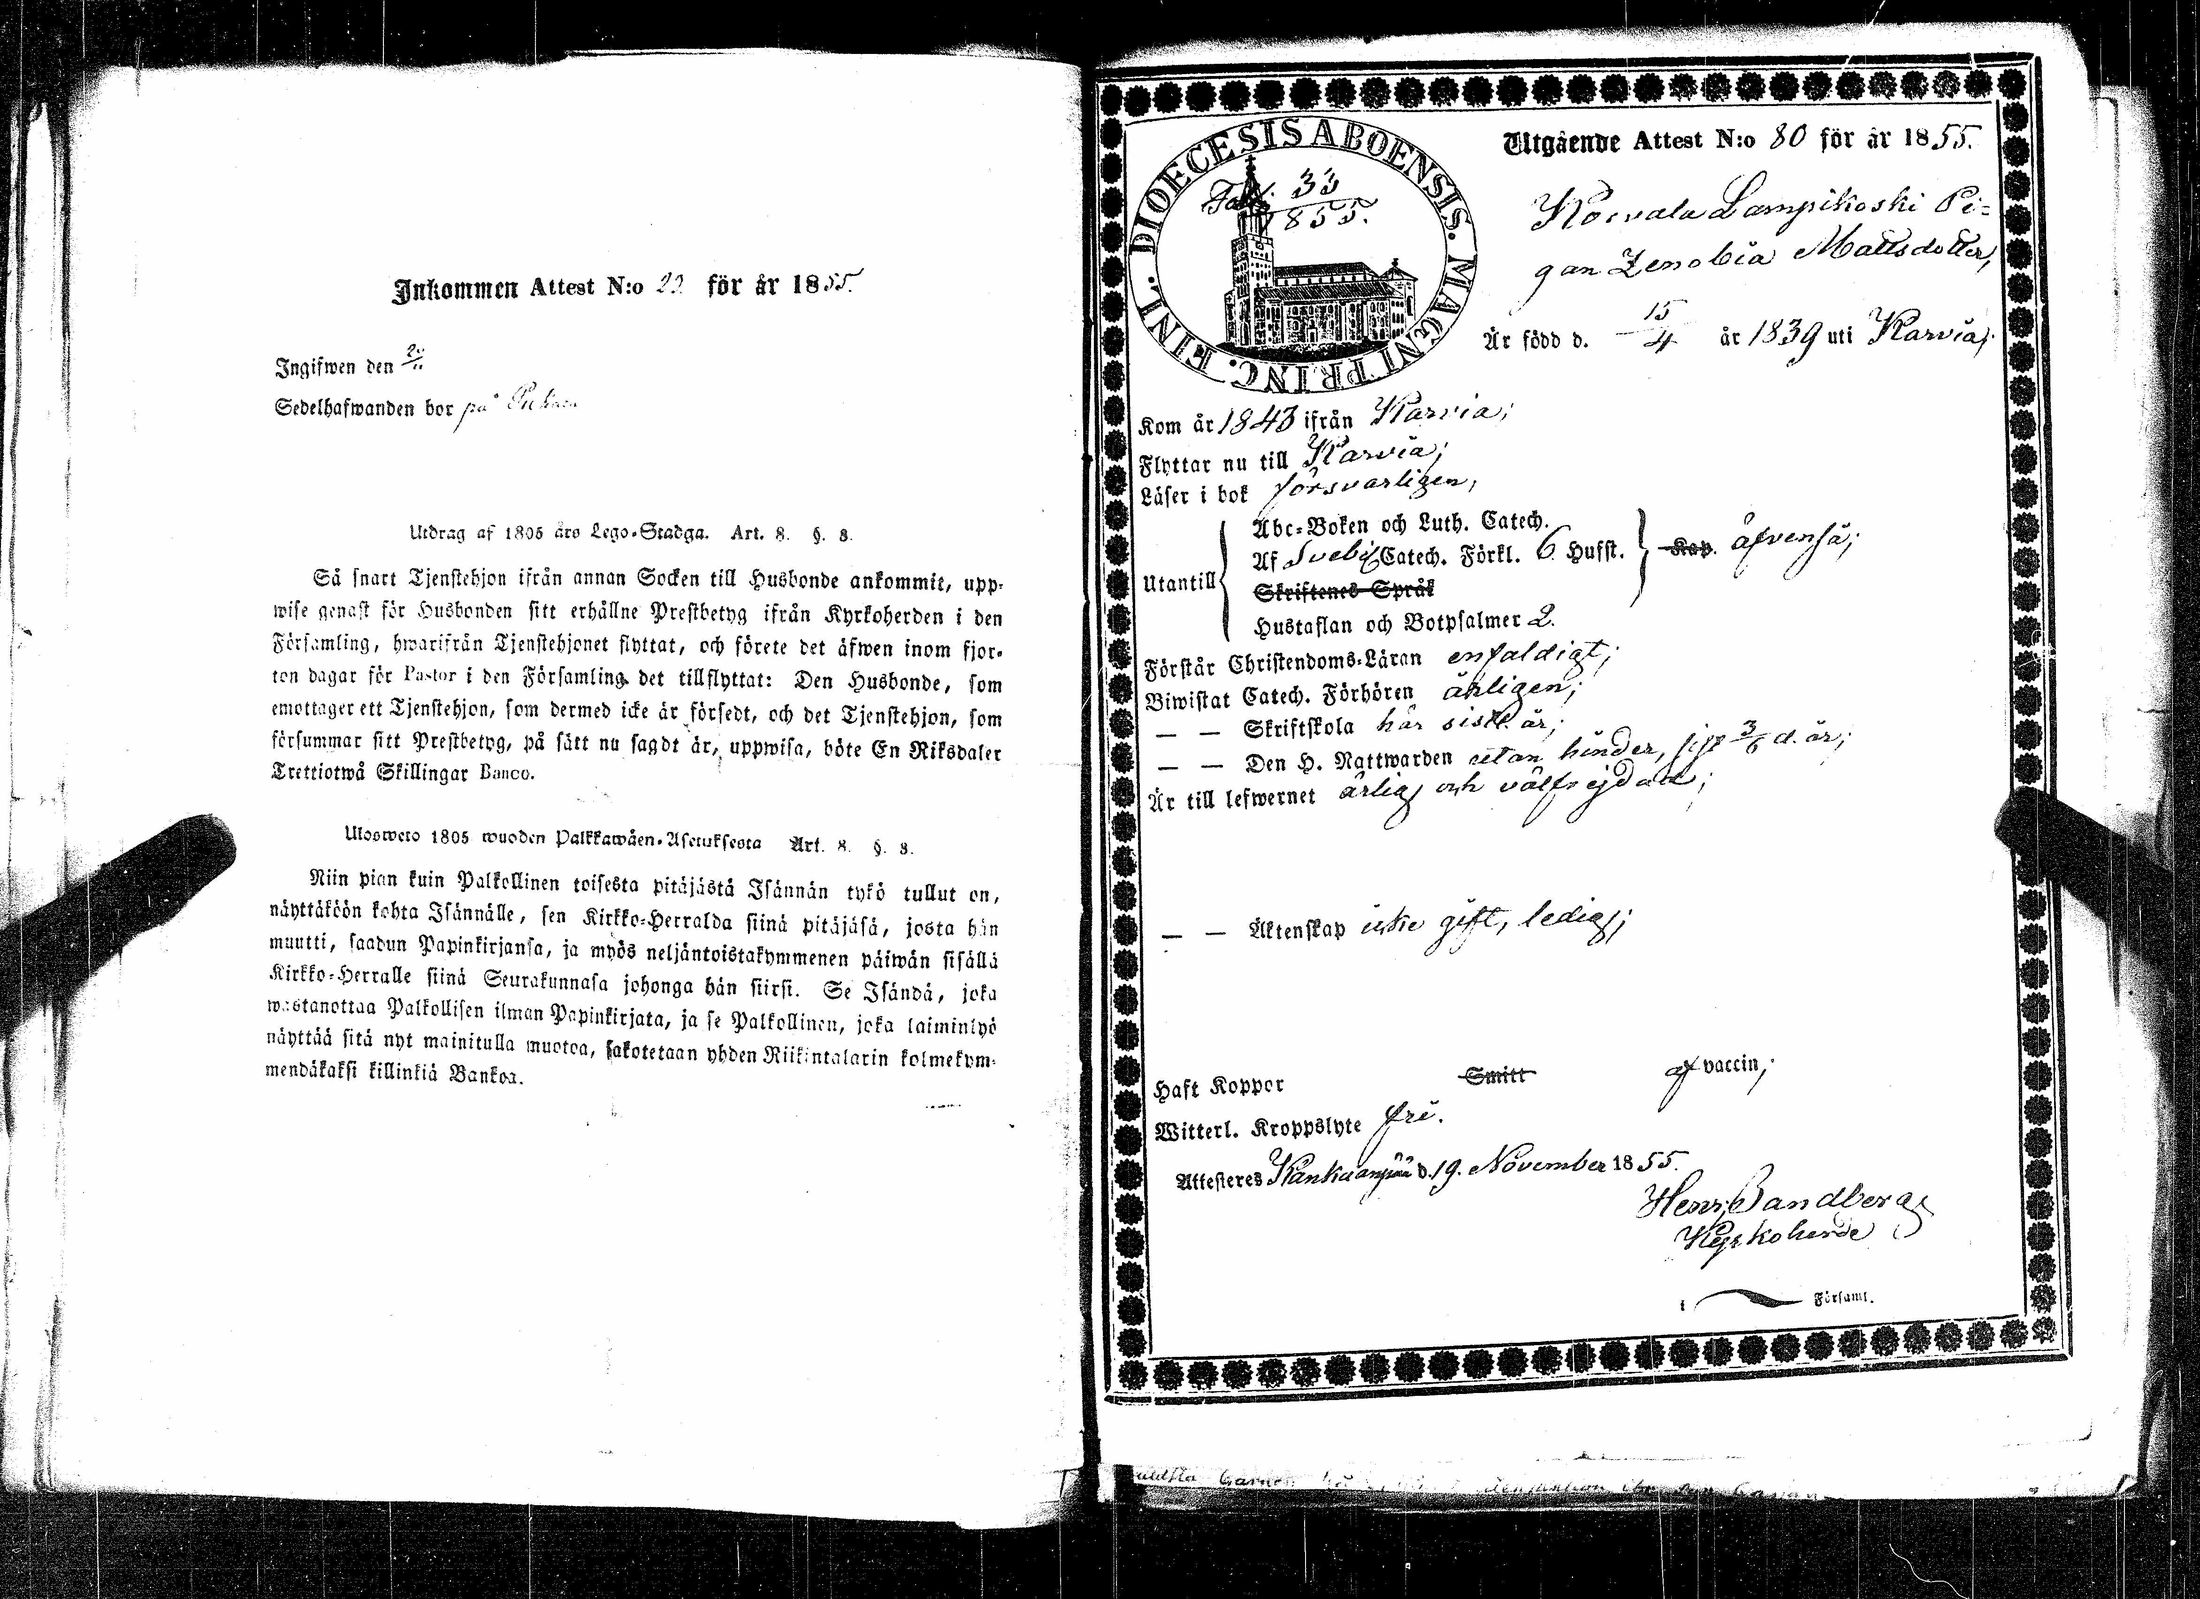 Inkommen Attest N:o 23 för år 1855.
Ingifwen den
Sedelhafwanden bor på
Utdrag af 1805 års Lego-Stadga. Art. 8. §. 8.
Så snart Tjenstehjon ifrån annan Socken till Husbonde ankommit, upp-
wise genast för Husbonden sitt erhållne Prestbetyg ifrån Kyrkoherden i den
Församling, hwarifrån Tjenstehjonet flyttat, och förete det äfwen inom fjor-
ton dagar för Pastor i den Församling det tillflyttat: Den Husbonde, som
emottager ett Tjenstehjon, som dermed icke är försedt, och det Tjenstehjon, som
försummar sitt Prestbetyg, på sätt nu sagdt är, uppwisa, böte En Riksdaler
Trettiotwå Skillingar Banco.
Ulosweto 1805 wuoden Palkkawäen-Asetuksesta Art. 8. §. 8.
Niin pian kuin Palkollinen toisesta pitäjästä Isännän tykö tullut on,
näyttäköön kohta Isännälle, sen Kirkko-Herralda siinä pitäjäsä, josta hän
muutti, saadun Papinkirjansa, ja myös neljäntoistakymmenen päiwän sisällä
Kirkko-Herralle siinä Seurakunnasa johonga hän siirsi. Se Isändä, joka
wastanottaa Palkollisen ilman Papinkirjata, ja se Palkollinen, joka laiminlyö
näyttää sitä nyt mainitulla muotoa, sakotetaan yhden Riikintalarin kolmekym-
mendäkaksi killinkiä Bankoa.
DIOECESIS ABOENSIS. MAGNI PRINC. FINL.
33
1855.
Utgående Attest N:o 80 för år 1855.
Lampikoski Pi=
gan Zenobia Mattsdotter,
Är född d. 15/4 år 1839 uti Karvia;
Kom år 1843 ifrån Karvia;
Flyttar nu till Karvia;
Läser i bok försvarligen,
Utantill
Abc-Boken och Luth. Catech.
Af Svebi Catech. Förkl. 6 Hufst. Kap. äfvenså;
Skriftenes Språk
Hustaflan och Botpsalmer 2.
Förstår Christendoms-Läran enfaldigt;
Biwistat Catech. Förhören årligen;
— — Skriftskola här sistl. år;
— — Den H. Nattwarden utan hinder, sist 3/6 d. år;
Är till lefwernet ärlig och välfrejdad;
— — Äktenskap icke gift, ledig;
Haft Koppor Smitt af vaccin;
Witterl. Kroppslyte fri.
Attesteres Kankaanpää d. 19. November 1855.
Henr. Sandberg
Kyrkoherde
i Församl.